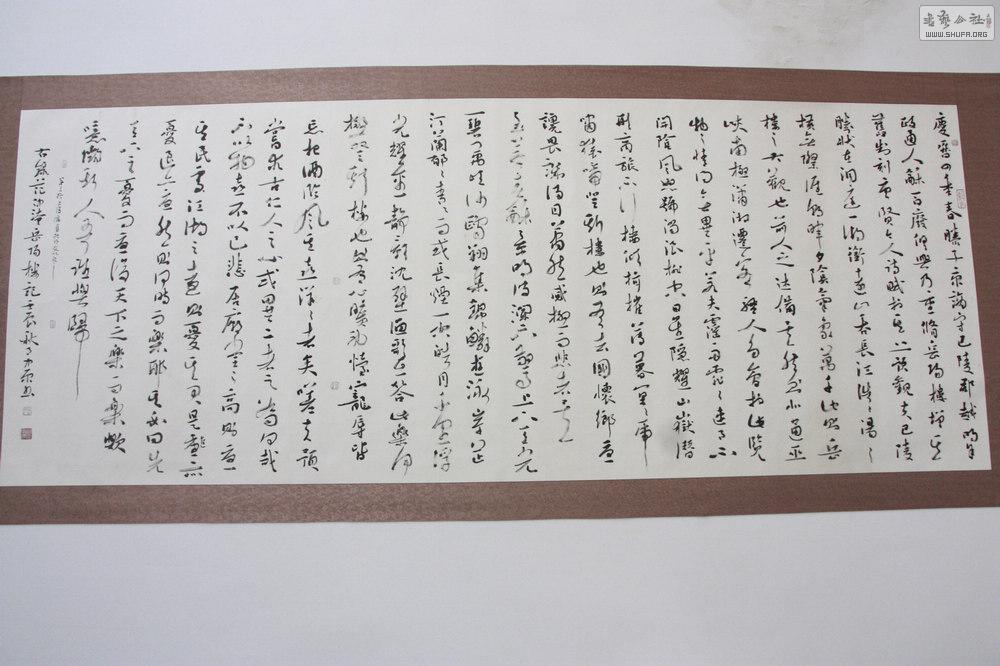 書藝公社
WWW.SHUFA.ORG
慶曆四年春滕子京謫守巴陵郡越明年
政通人龢百廢俱興乃重脩岳陽樓增其
舊制刻唐賢今人詩賦於其上予觀夫巴陵
勝狀在洞庭一湖銜遠山吞長江浩浩湯湯
橫無際涯朝暉夕陰氣象萬千此則岳
樓之大觀也前人之述備矣然則北通巫
峽南極瀟湘遷客騷人多會於此覽
物之情得無異乎若夫霪雨霏霏連月不
開陰風怒號濁浪排空日星隱耀山嶽潛
形商旅不行檣傾楫摧薄暮冥冥虎
嘯猿啼登斯樓也則有去國懷鄉憂
讒畏譏滿目蕭然感極而悲者矣
至若春龢景明波瀾不驚上下天光
一碧萬頃沙鷗翔集錦鱗游泳岸芷
汀蘭郁郁青青而或長煙一空皓月千里浮
光耀金靜影沈璧漁歌互答此樂何
極登斯樓也則有心曠神怡寵辱皆
忘把酒臨風其喜洋洋者矣嗟夫予
嘗求古仁人之心或異二者之為何哉
不以物喜不以己悲居廟堂之高則憂
其民處江湖之遠則憂其君是進亦
憂退亦憂然則何時而樂耶其必曰先
天下之憂而憂後天下之樂而樂歟
噫微斯人吾誰與歸
范仲淹岳陽樓記壬辰秋